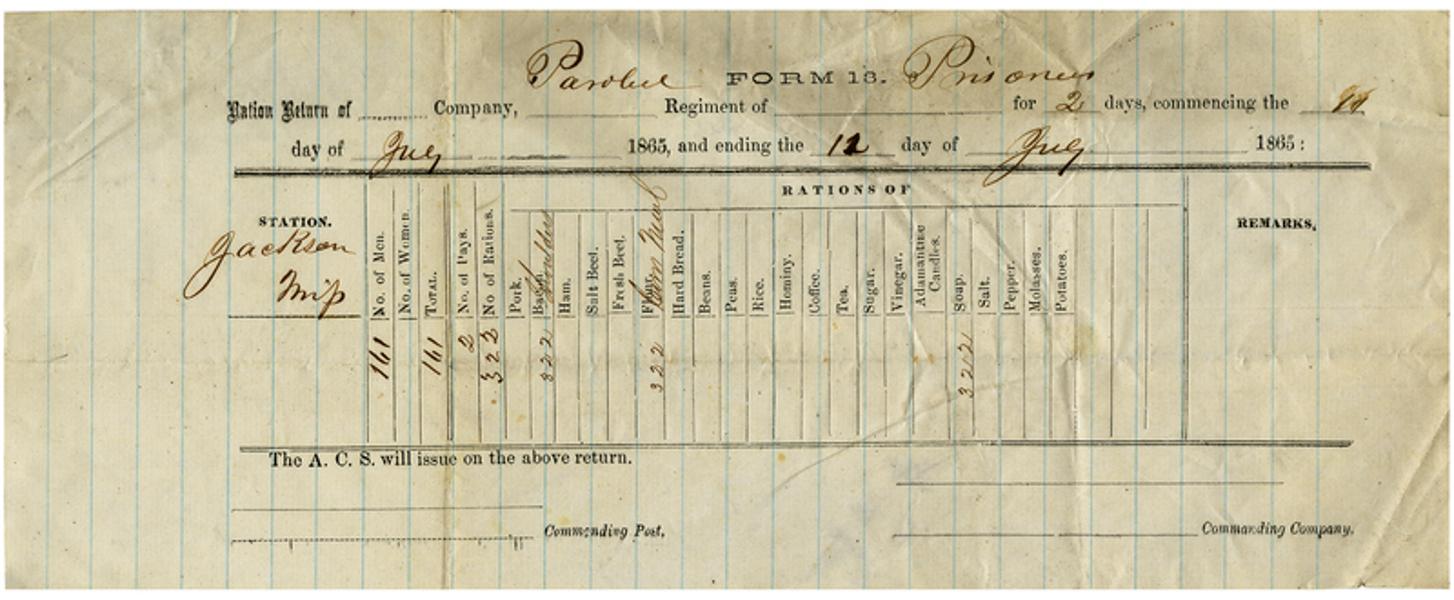 Paroled FORM 13. Prisoners
Ration Return of Company, Regiment of for 2 days, commencing the
day of July 1865, and ending the 12 day of July 1865:
RATIONS OF
STATION.
Jackson
Miss
No. of Men.
No. of Women.
TOTAL.
No. of Days.
No of Rations.
Pork.
Bacon. Shoulder
Ham.
Salt Beef.
Fresh Beef.
Flour. Corn Meal
Hard Bread.
Beans.
Peas.
Rice.
Hominy.
Coffee.
Tea.
Sugar.
Vinegar.
Adamantine Candles.
Soap.
Salt.
Pepper.
Molasses.
Potatoes.
REMARKS.
161 161 2 322 322 322 322
The A. C. S. will issue on the above return.
Commending Post.
Commanding Company.